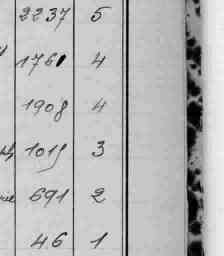 2237 5
1760 4
1908 4
1019 3
691 2
46 1